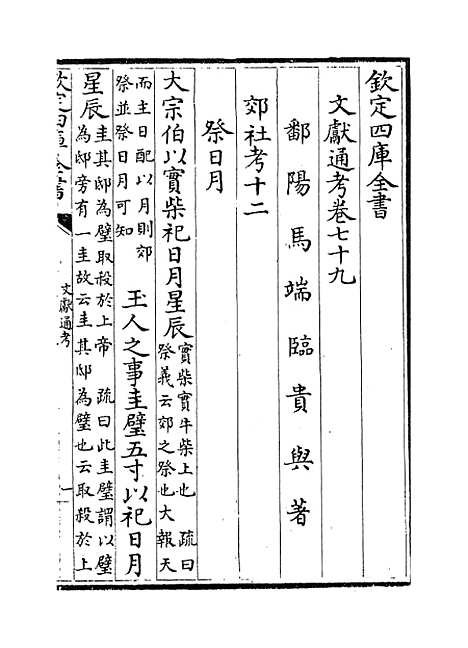 欽定四庫全書
文獻通考卷七十九
鄱陽馬端臨貴與著
郊社考十二
祭日月
大宗伯以實柴祀日月星辰實柴實牛柴上也　疏曰
祭義云郊之祭也大報天
而主日配以月則郊
祭並祭日月可知
玉人之事圭璧五寸以祀日月
星辰圭其邸為璧取殺於上帝　疏曰此圭璧謂以璧
為邸旁有一圭故云圭其邸為璧也云取殺於上
欽定四庫全書
文獻通考
一